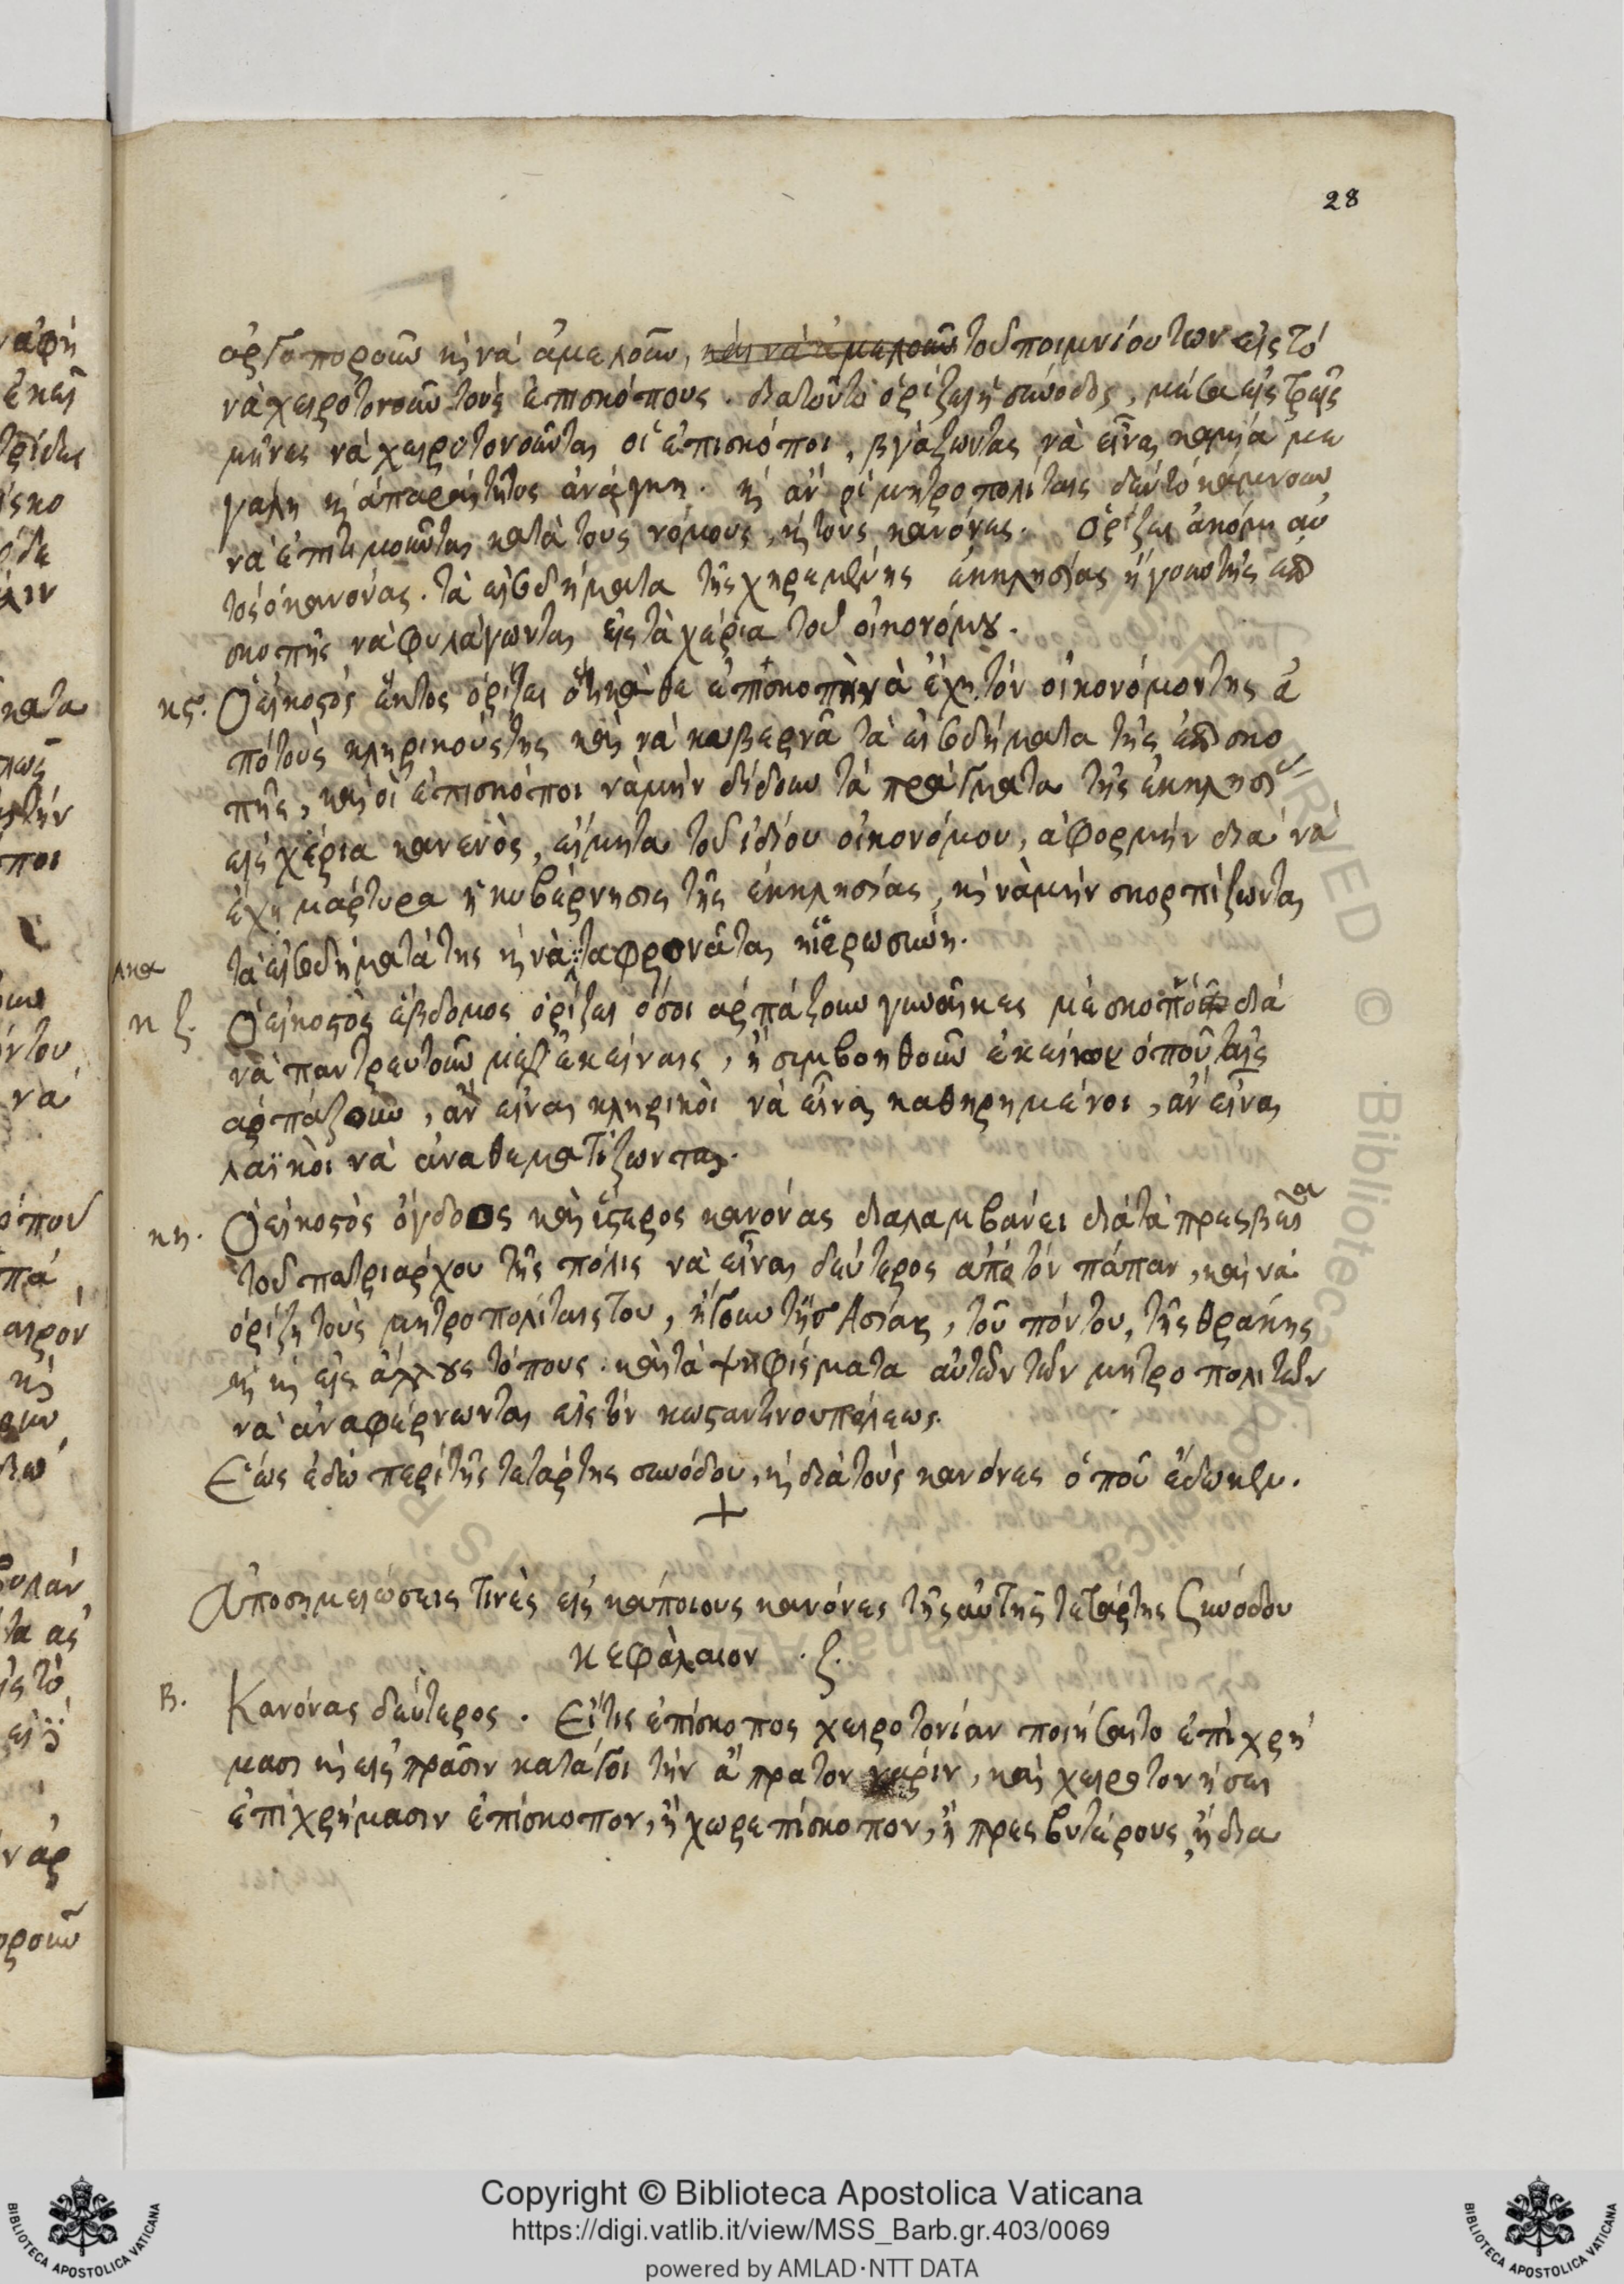 28
ἀργοποροῦν κὶ νὰ ἀμελοῦν, καὶ νὰ ἀμελοῦν τοῦ ποιμνίου των εἰς τό
νὰ χειροτονοῦν τοὺς ἐπισκόπους. διατοῦτο ὁρίζει ἡ σύνοδος, μέσα εἰς τρεῖς
μῆνες νὰ χειροτονοῦνται οἱ ἐπισκόποι, βγάζωντας νὰ εἶναι καμμία με
γάλη κὶ ἀπαραίτητος ἀνάγκη. κὶ ἀν οἱ μητροπολίταις δὲν τὸ κάμνουν
νὰ ἐπιτιμοῦνται κατὰ τους νόμους, κὶ τοὺς κανόνες. Ὁρίζει ἀκόμη αὐ
τὸς ὁ κανόνας. τὰ εἰσοδήματα τῆς χηρεμένης ἐκκλησίας ἤγουν τῆς ἐπι
σκοπῆς νὰ φυλάγωνται εἰς τὰ χέρια τοῦ οἰκονόμου.
κς. Ὁ εἰκοστὸς ἕκτος ὁρίζει ὅτι κάθε ἐπισκοπὴ νὰ ἔχη τὸν οἰκονόμον της ἀ
πὸ τοὺς κληρικούς της καὶ νὰ κυβερνᾶ τὰ εἰσοδήματα τῆς ἐπισκο
πῆς, καὶ οἱ ἐπισκόποι νὰ μὴν δίδουν τὰ πράγματα τῆς ἐκκλησί
εἰς χέρια κανενὸς, εἰμητα τοῦ ἰδίου οἰκονόμου, ἀφορμὴν διὰ νὰ
ἔχη μάρτυρα ἡ κυβέρνησις τῆς ἐκκλησίας, κὶ νὰ μὴν σκορπίζωνται
τὰ εἰσοδήματά της κὶ νὰ ταφρονᾶται ἡ ἱερωσύνη.
κα
κζ. Ὁ εἰκοστὸς ἕβδομος ὁρίζει ὅσοι ἁρπάζουν γυναῖκες μὲ σκοπὸν διά
νὰ παντρευτοῦν μετ' ἐκείναις, ἢ συμβοηθοῦν ἐκείνους ὁποῦ ταῖς
ἁρπάζουν, ἀν εἶναι κληρικοὶ νὰ εἶναι καθηρημένοι, ἀν εἶναι
λαϊκὸι νὰ ἀναθεματίζωνται.
κη. Ὁ εἰκοστὸς ὄγδοος καὶ ὕστερος κανόνας διαλαμβάνει διὰ τὰ πρεσβεῖα
τοῦ πατριάρχου τῆς πόλις νὰ εἶναι δεύτερος ἀπὲ τὸν πάπαν, καὶ νὰ
ὁρίζη τοὺς μητροπολίταις του, ἤγουν τῆς Ἀσίας, τοῦ πόντου, τῆς θράκης
κὶ κὶ εἰς ἄλλους τόπους. καὶ τὰ ψηφίσματα αὐτῶν τῶν μητροπολιτῶν
νὰ ἀναφέρνωνται εἰς τὸν κωσταντινουπόλεως.
Ἕως ἐδῶ περὶ τῆς τετάρτης συνόδου, κὶ διὰ τοὺς κανόνες ὁποῦ ἔδωκεν.
+
Ἀποσημειώσεις τινὲς εἰς κάποιους κανόνες τῆς αὐτῆς τετάρτης Συνόδου
κεφάλαιον .ζ.
β. Κανόνας δεύτερος. Εἴτις ἐπίσκοπος χειροτονίαν ποιήσαιτο ἐπὶ χρή
μασι κὶ εἰς πρᾶσιν κατάγοι τὴν ἄπρατον χάριν, καὶ χειροτονήσει
ἐπὶ χρήμασιν ἐπίσκοπον, ἢ χωρεπίσκοπον, ἢ πρεσβυτέρους, ἢ δια
Copyright © Biblioteca Apostolica Vaticana
https://digi.vatlib.it/view/MSS_Barb.gr.403/0069
powered by AMLAD·NTT DATA